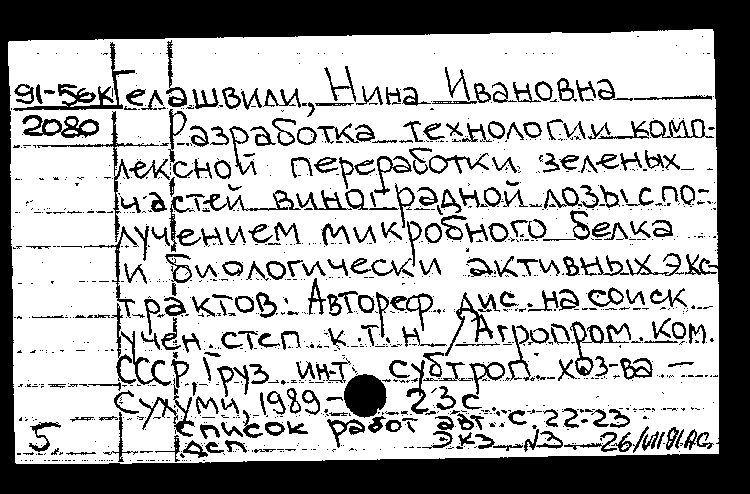 91-56к Гелашвили, Нина Ивановна
2080 Разработка технологии комп-
лексной переработки зеленых
частей виноградной лозы с по-
лучением микробного белка
и биологически активных экс-
трактов: Автореф. дис. на соиск.
учен. степ. к. т. н. / Агропром. ком.
СССР, Груз. ин-т субтроп. хоз-ва —
Сухуми, 1989.- 23 с
5. Список работ авт.: с. 22-23.
ДСП. Экз. N3 26/VII 91 АС